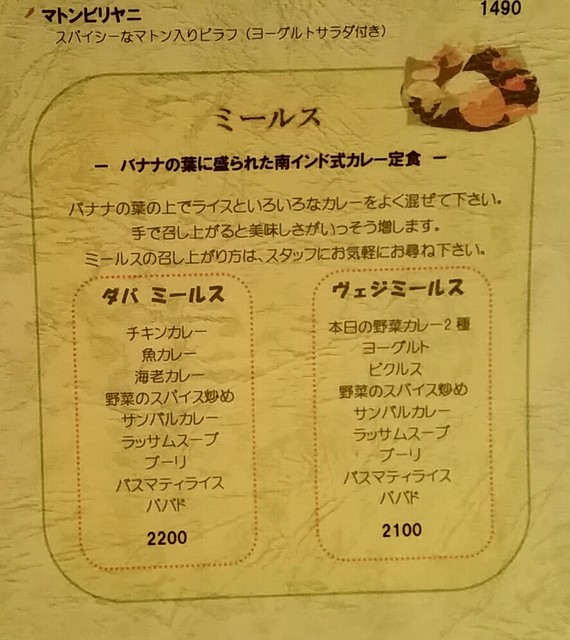 マトンビリヤニ 1490
スパイシーなマトン入りピラフ（ヨーグルトサラダ付き）
ミールス
ー バナナの葉に盛られた南インド式カレー定食 ー
バナナの葉の上でライスといろいろなカレーをよく混ぜて下さい。
手で召し上がると美味しさがいっそう増します。
ミールスの召し上がり方は、スタッフにお気軽にお尋ね下さい。
ダバ ミールス
チキンカレー
魚カレー
海老カレー
野菜のスパイス炒め
サンバルカレー
ラッサムスープ
プーリ
バスマティライス
パパド
2200
ヴェジミールス
本日の野菜カレー2種
ヨーグルト
ピクルス
野菜のスパイス炒め
サンバルカレー
ラッサムスープ
プーリ
バスマティライス
パパド
2100